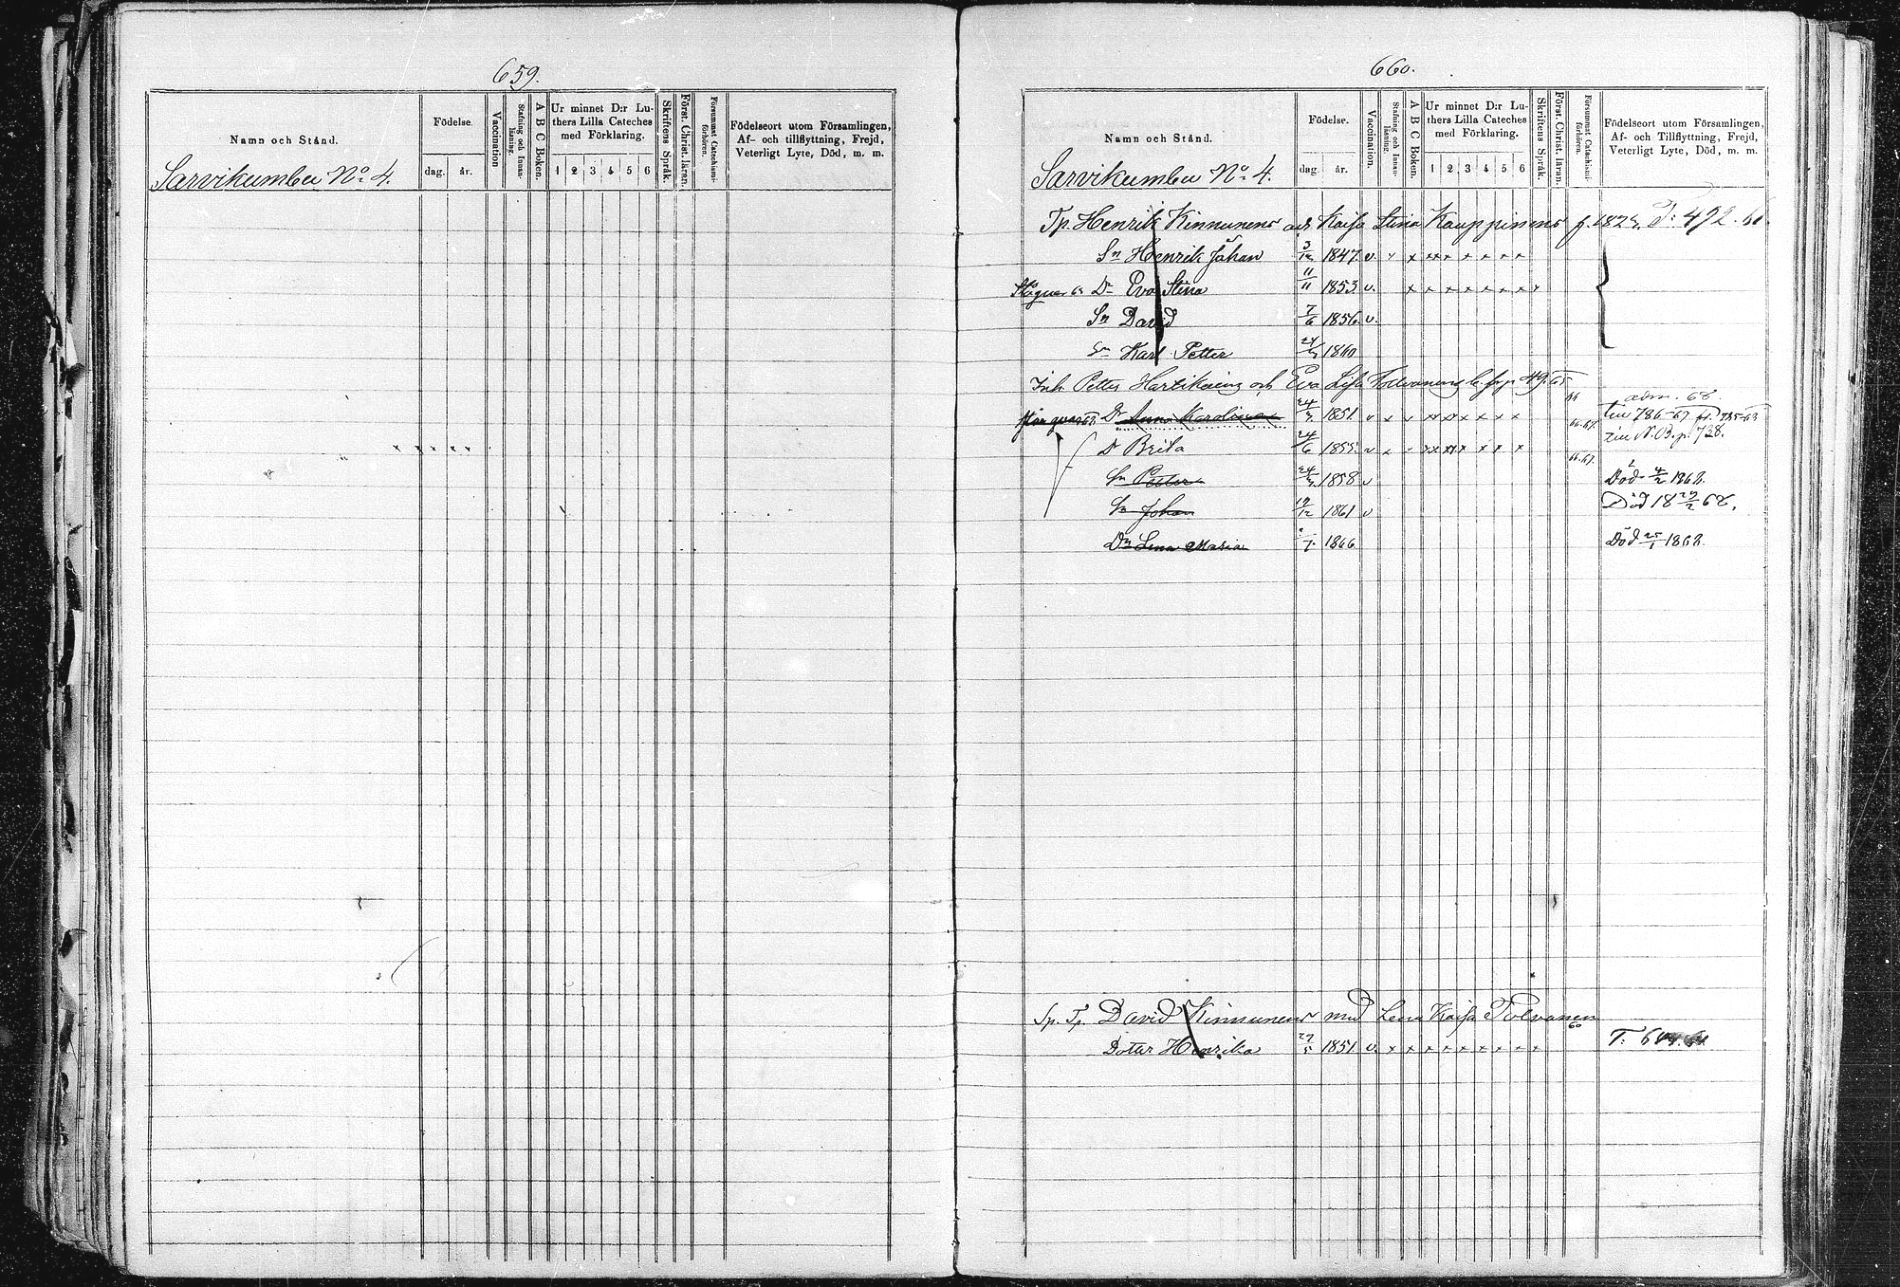 659.
Namn och Stånd.
Födelse.
dag. år.
Vaccination
Stafning och Innanläsning.
A B C Boken.
Ur minnet D:r Luthers Lilla Cateches med Förklaring.
1 2 3 4 5 6
Skriftens Språk.
Först. Christ. läran.
Försummat Catechismiförhören.
Födelseort utom Församlingen,
Af- och tillflyttning, Frejd,
Veterligt Lyte, Död, m. m.
Sarvikumbu No 4.
660.
Namn och Stånd.
Födelse.
dag. år.
Vaccination.
Stafning och Innanläsning.
A B C Boken.
Ur minnet D:r Luthers Lilla Cateches med Förklaring.
1 2 3 4 5 6
Skriftens Språk.
Först. Christ. läran.
Försummat Catechismiförhören.
Födelseort utom Församlingen,
Af- och Tillflyttning, Frejd,
Veterligt Lyte, Död, m. m.
Sarvikumbu No 4.
Tp. Henrik Kinnunens och Kaisa Stina Kauppinens
Sn Henrik Johan 3/12 1847 v.
Dr Eva Stina 11/11 1853 v.
Sn David 7/6 1856 v.
Sn Karl Petter 1860
Inh. Petter Hartikains och Eva Lisa Tolvanens
Dr Anna Karolina 1851 v
Dr Brita 24/6 1855 v
Sn Petter 1858 v Död 4/2 1868.
Sn Johan 19/12 1861 v Död 18 29/2 68.
Dr Lena Maria 1866 Död 25/1 1868.
Sp. Tp. David Kinnunens med Lena Kaisa Tolvanen
Dotter Henrika 27/5 1851 v.